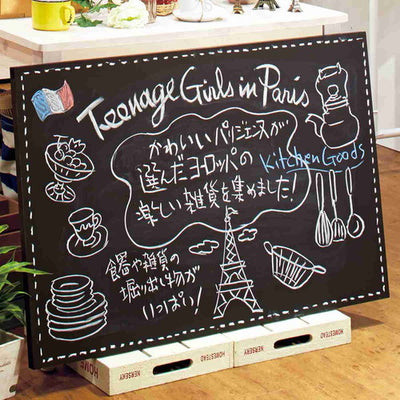 Teenage Girls in Paris
かわいいパリジェンヌが
選んだヨーロッパの
Kitchen Goods
楽しい雑貨を集めました!
食器や雑貨の
掘り出し物が
いっぱい!
HOMESTEAD
KERSENY
HOMESTEAD
KERSENY